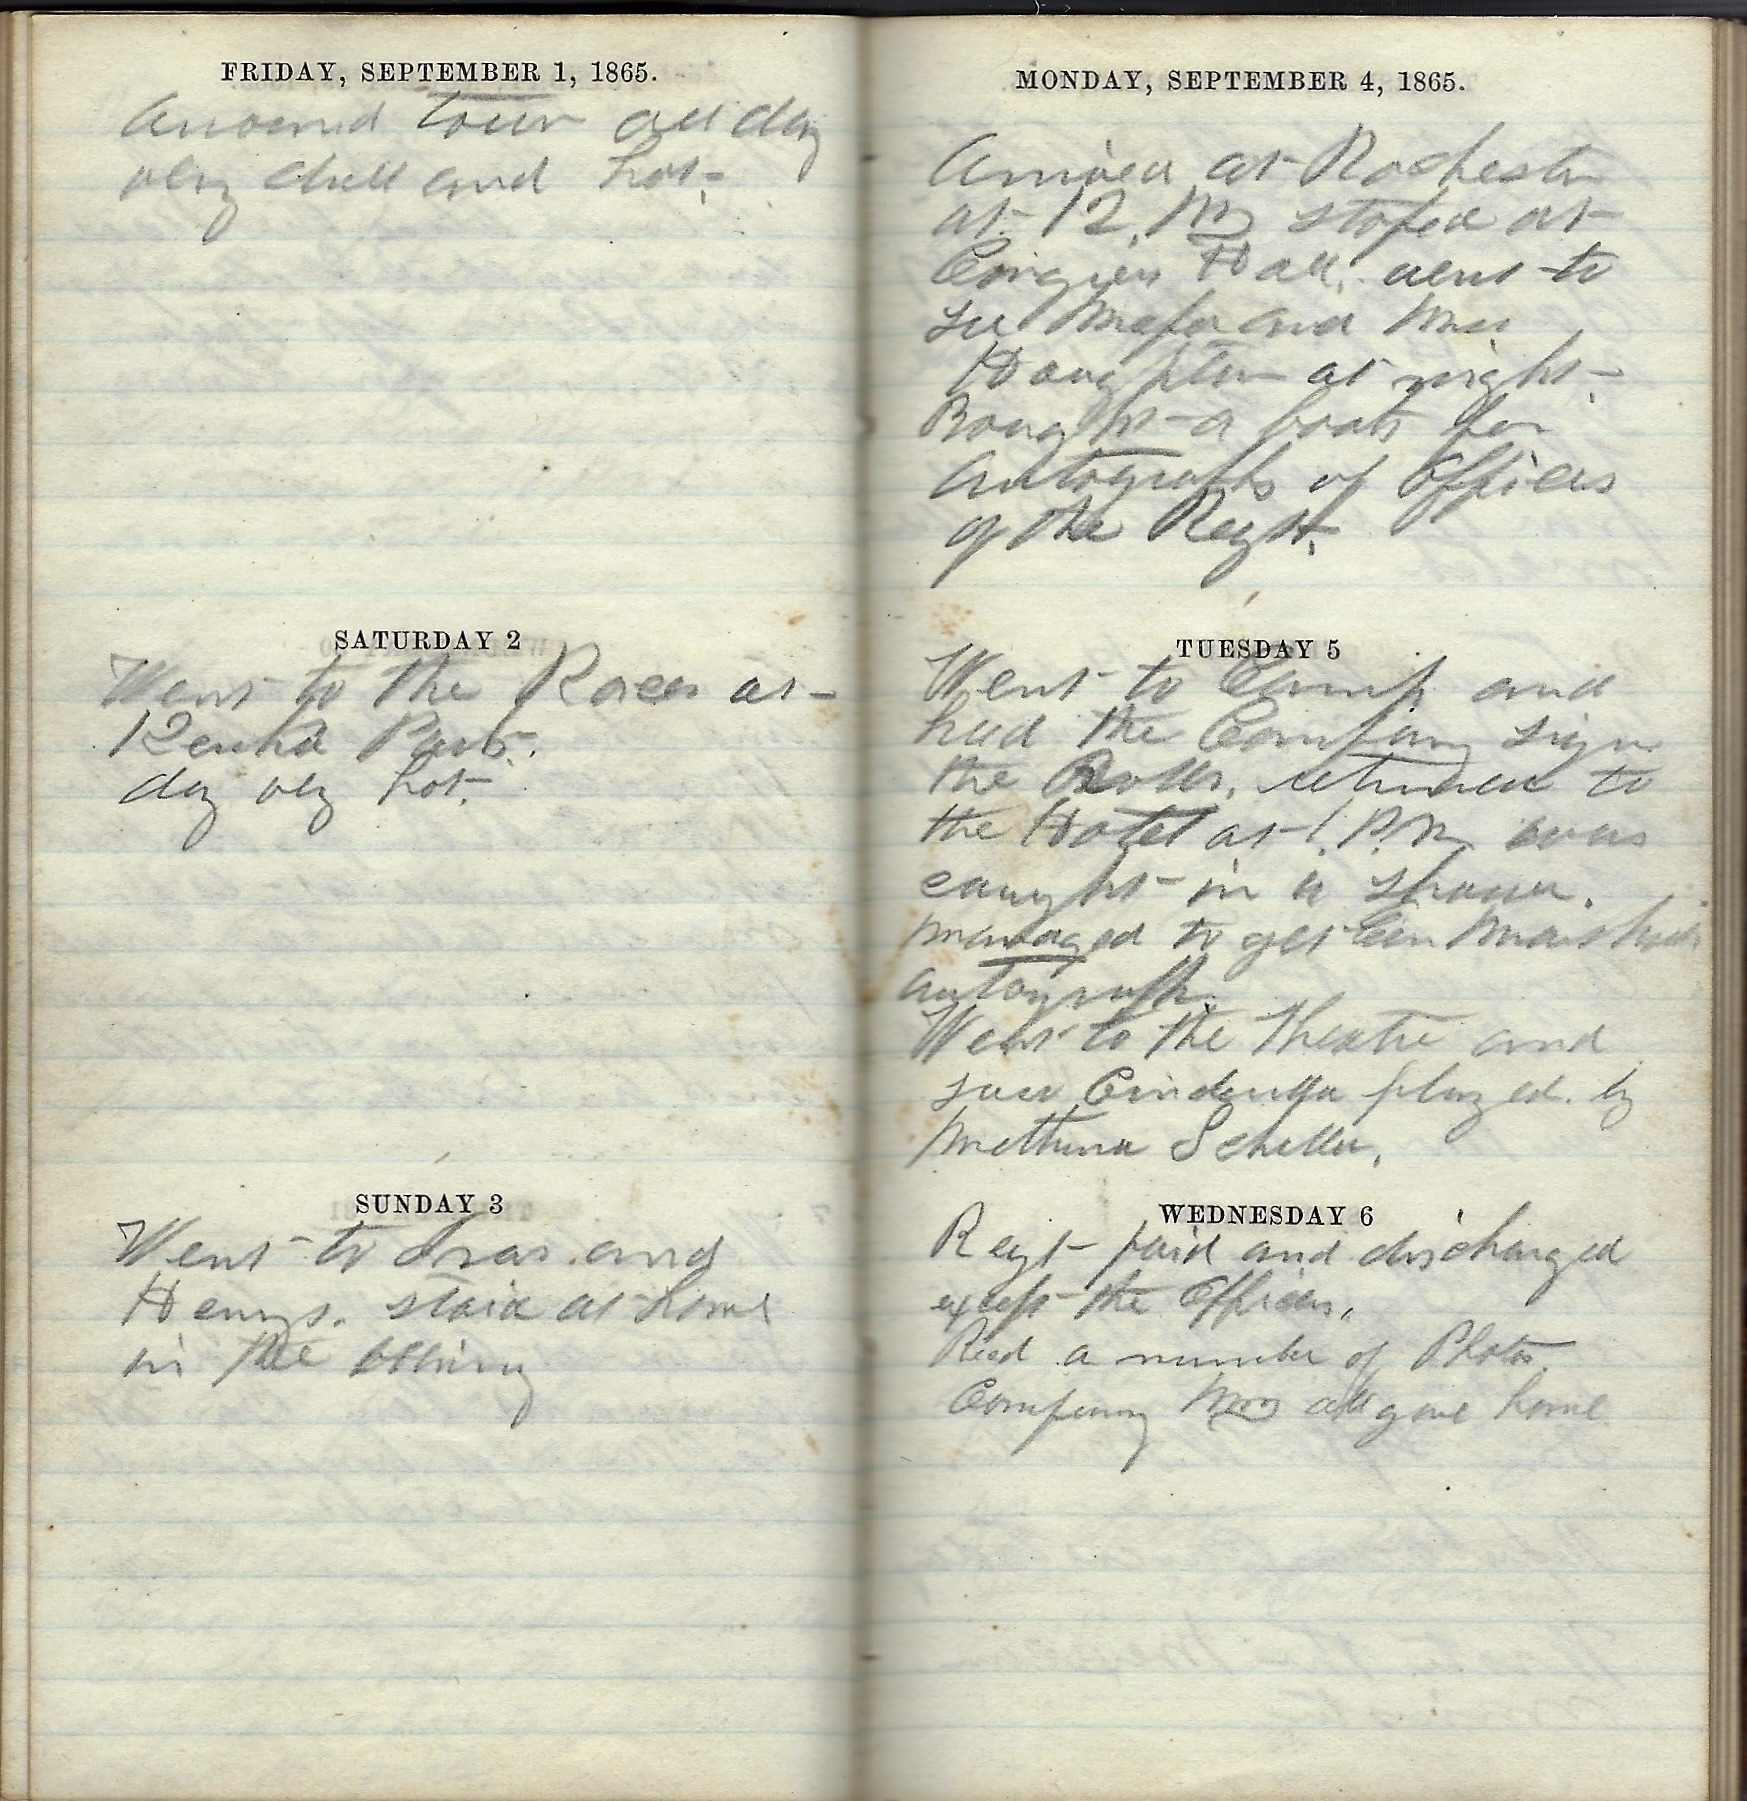 FRIDAY, SEPTEMBER 1, 1865.
Around town all day
very dull and hot.
SATURDAY 2
Went to the Races at
day very hot.
SUNDAY 3
Went to Iras and
Henrys. staid at home
in the evening
MONDAY, SEPTEMBER 4, 1865.
Arrived at Rochester
at 12, M stoped at
Congress Hall, went to
see Major and Mrs
Houghton at night.
Bought a book for
Autographs of Officers
of the Regt.
TUESDAY 5
Went to Camp and
had the Company sign
the Rolls, returned to
the Hotel at 1. P.M. was
caught in a shower.
managed to get Gen Marshals
autograph.
Went to the Theatre and
saw Cinderella played. by
Methua Scheller.
WEDNESDAY 6
Regt paid and discharged
except the Officers.
Recd a number of Photos.
Company Men all gone home